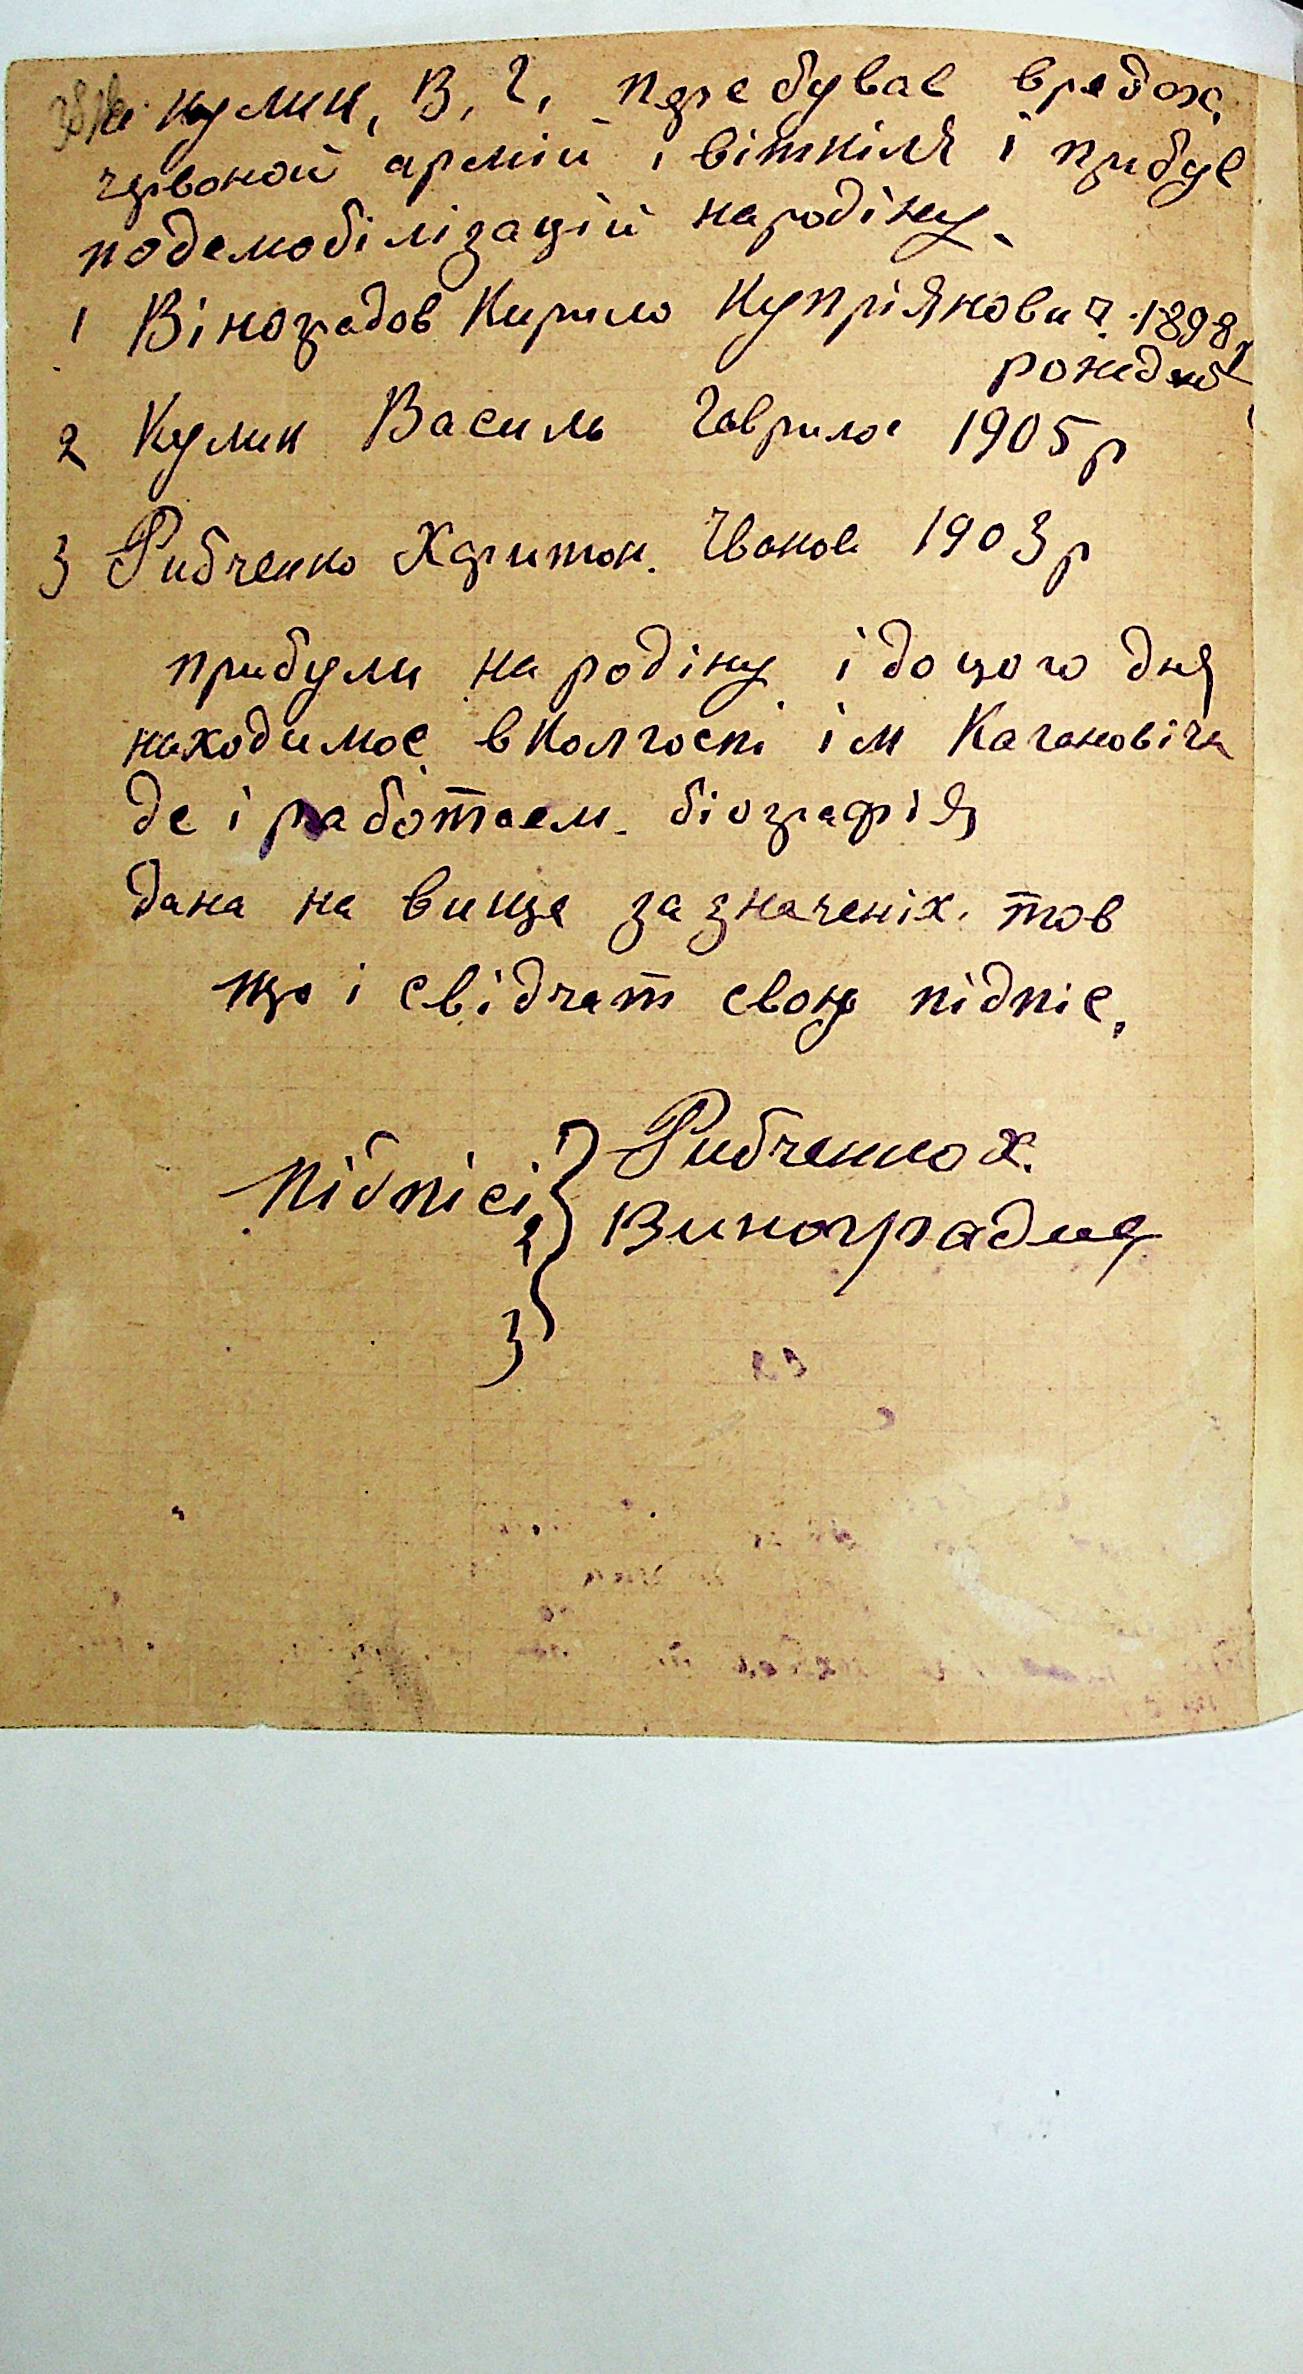 Кулик, В, Г, перебував врядах
червоной армій і віткіля і прибув
подемобілізацій народіну.
1 Віноградов Кирило Купріянович 1898р
рожден
2 Кулик Василь Гаврилов 1905р
3 Рибченко Харитон. Іванов 1903р
прибули на родіну і до цого дня
находимос вколгоспі ім Кагановіча
де і работаем. біографія
дана на вище зазначеніх. тов
що і свідчат свою підпіс,
Підпісі 1 Рибченко Х.
2 Виноградив
3